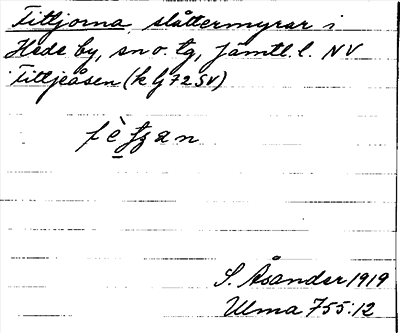 Tittjorna, slåttermyrar i
Hede by, sn o. tg, Jämtl. l. NV
Tittjeåsen (k bj 72 SV)
S. Åsander 1919
Ulma 755:12